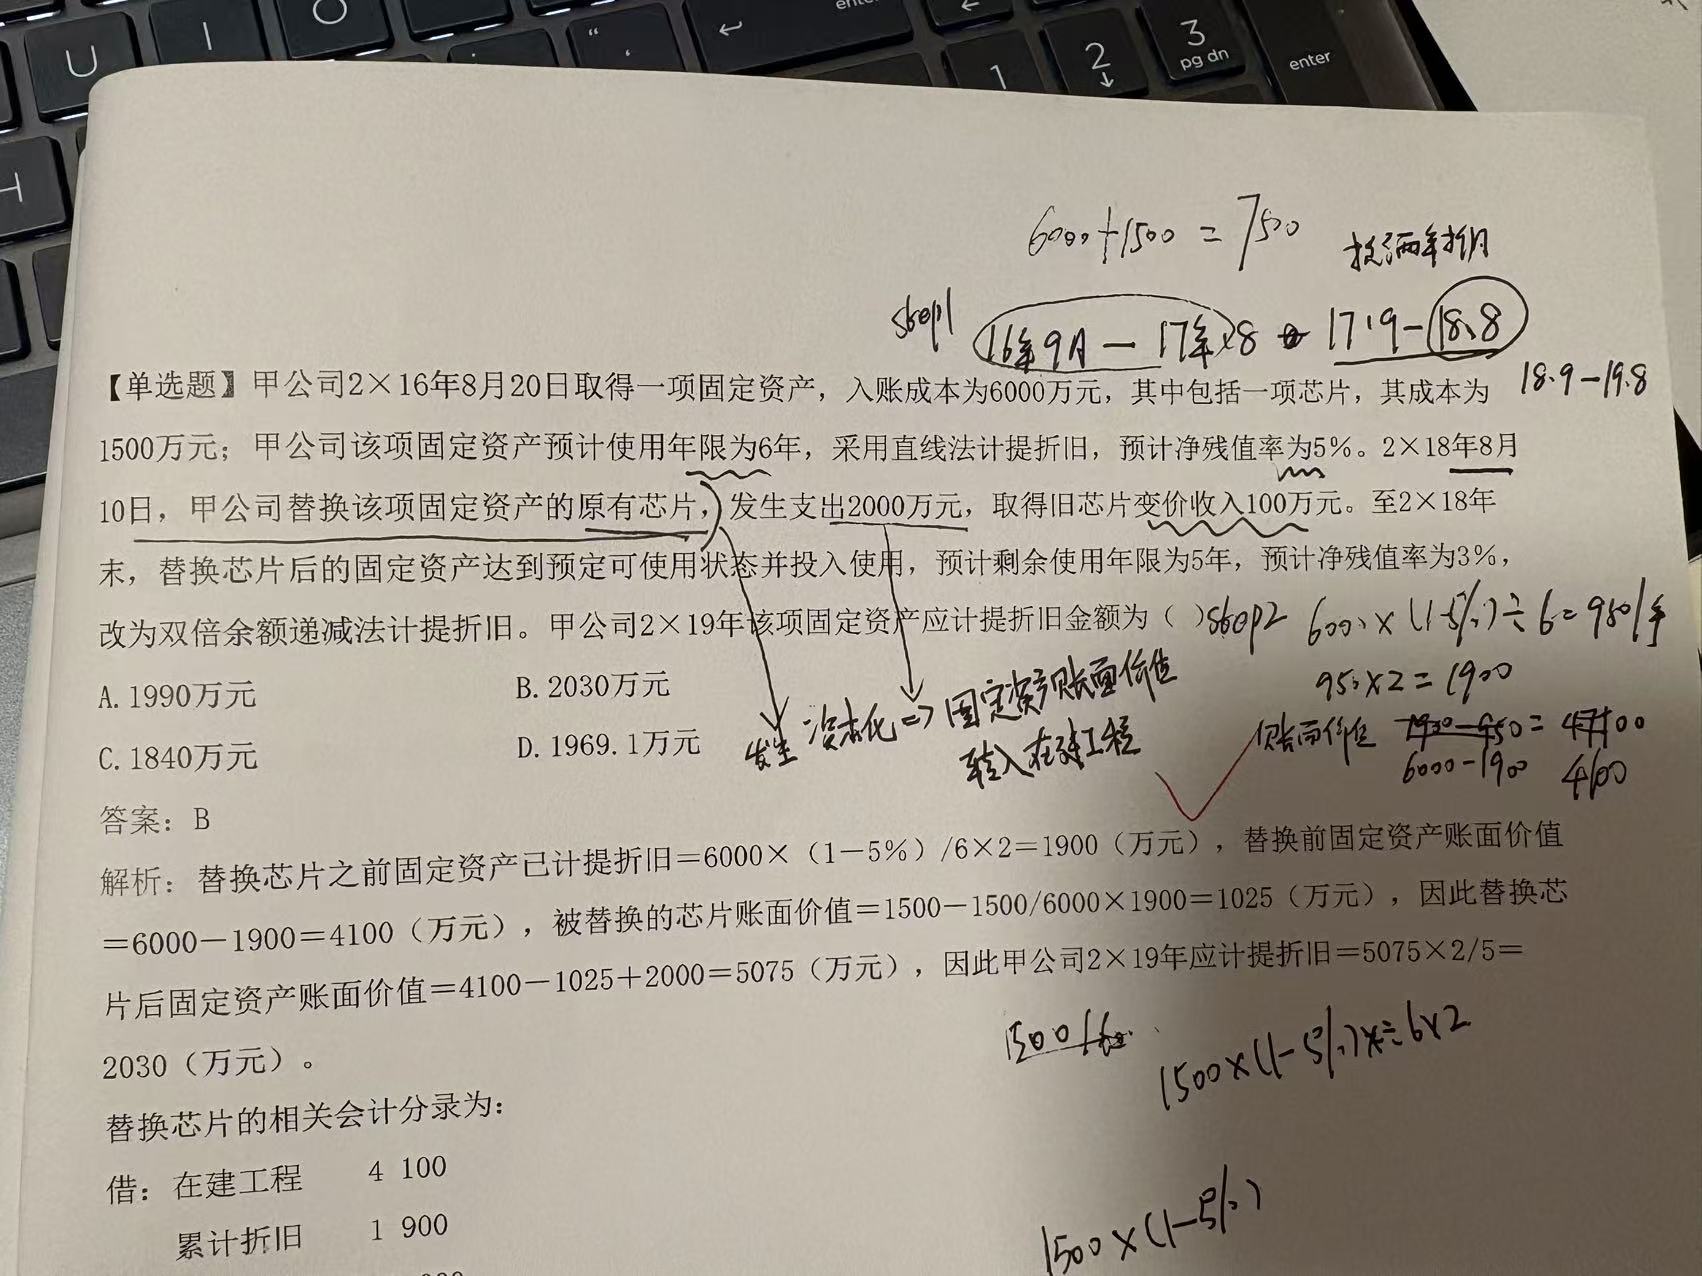 U I O enter
“ ‘ ↵ 1 2 ↓ 3 pg dn enter
H
6000+1500=7500
step1 16年9月—17年8 17.9—18.8
18.9—19.8
【单选题】甲公司2×16年8月20日取得一项固定资产，入账成本为6000万元，其中包括一项芯片，其成本为
1500万元；甲公司该项固定资产预计使用年限为6年，采用直线法计提折旧，预计净残值率为5%。2×18年8月
10日，甲公司替换该项固定资产的原有芯片，发生支出2000万元，取得旧芯片变价收入100万元。至2×18年
末，替换芯片后的固定资产达到预定可使用状态并投入使用，预计剩余使用年限为5年，预计净残值率为3%，
改为双倍余额递减法计提折旧。甲公司2×19年该项固定资产应计提折旧金额为（ ）
step2 6000×(1-5%)÷6=950/年
950×2=1900
A.1990万元 B.2030万元
C.1840万元 D.1969.1万元
发生 资本化=>固定资产账面价值
转入在建工程
账面价值
6000-1900 4100
答案：B
解析：替换芯片之前固定资产已计提折旧＝6000×（1－5%）/6×2＝1900（万元），替换前固定资产账面价值
＝6000－1900＝4100（万元），被替换的芯片账面价值＝1500－1500/6000×1900＝1025（万元），因此替换芯
片后固定资产账面价值＝4100－1025＋2000＝5075（万元），因此甲公司2×19年应计提折旧＝5075×2/5＝
2030（万元）。
1500×(1-5%)÷6×2
替换芯片的相关会计分录为：
借：在建工程 4 100
累计折旧 1 900
1500×(1-5%)